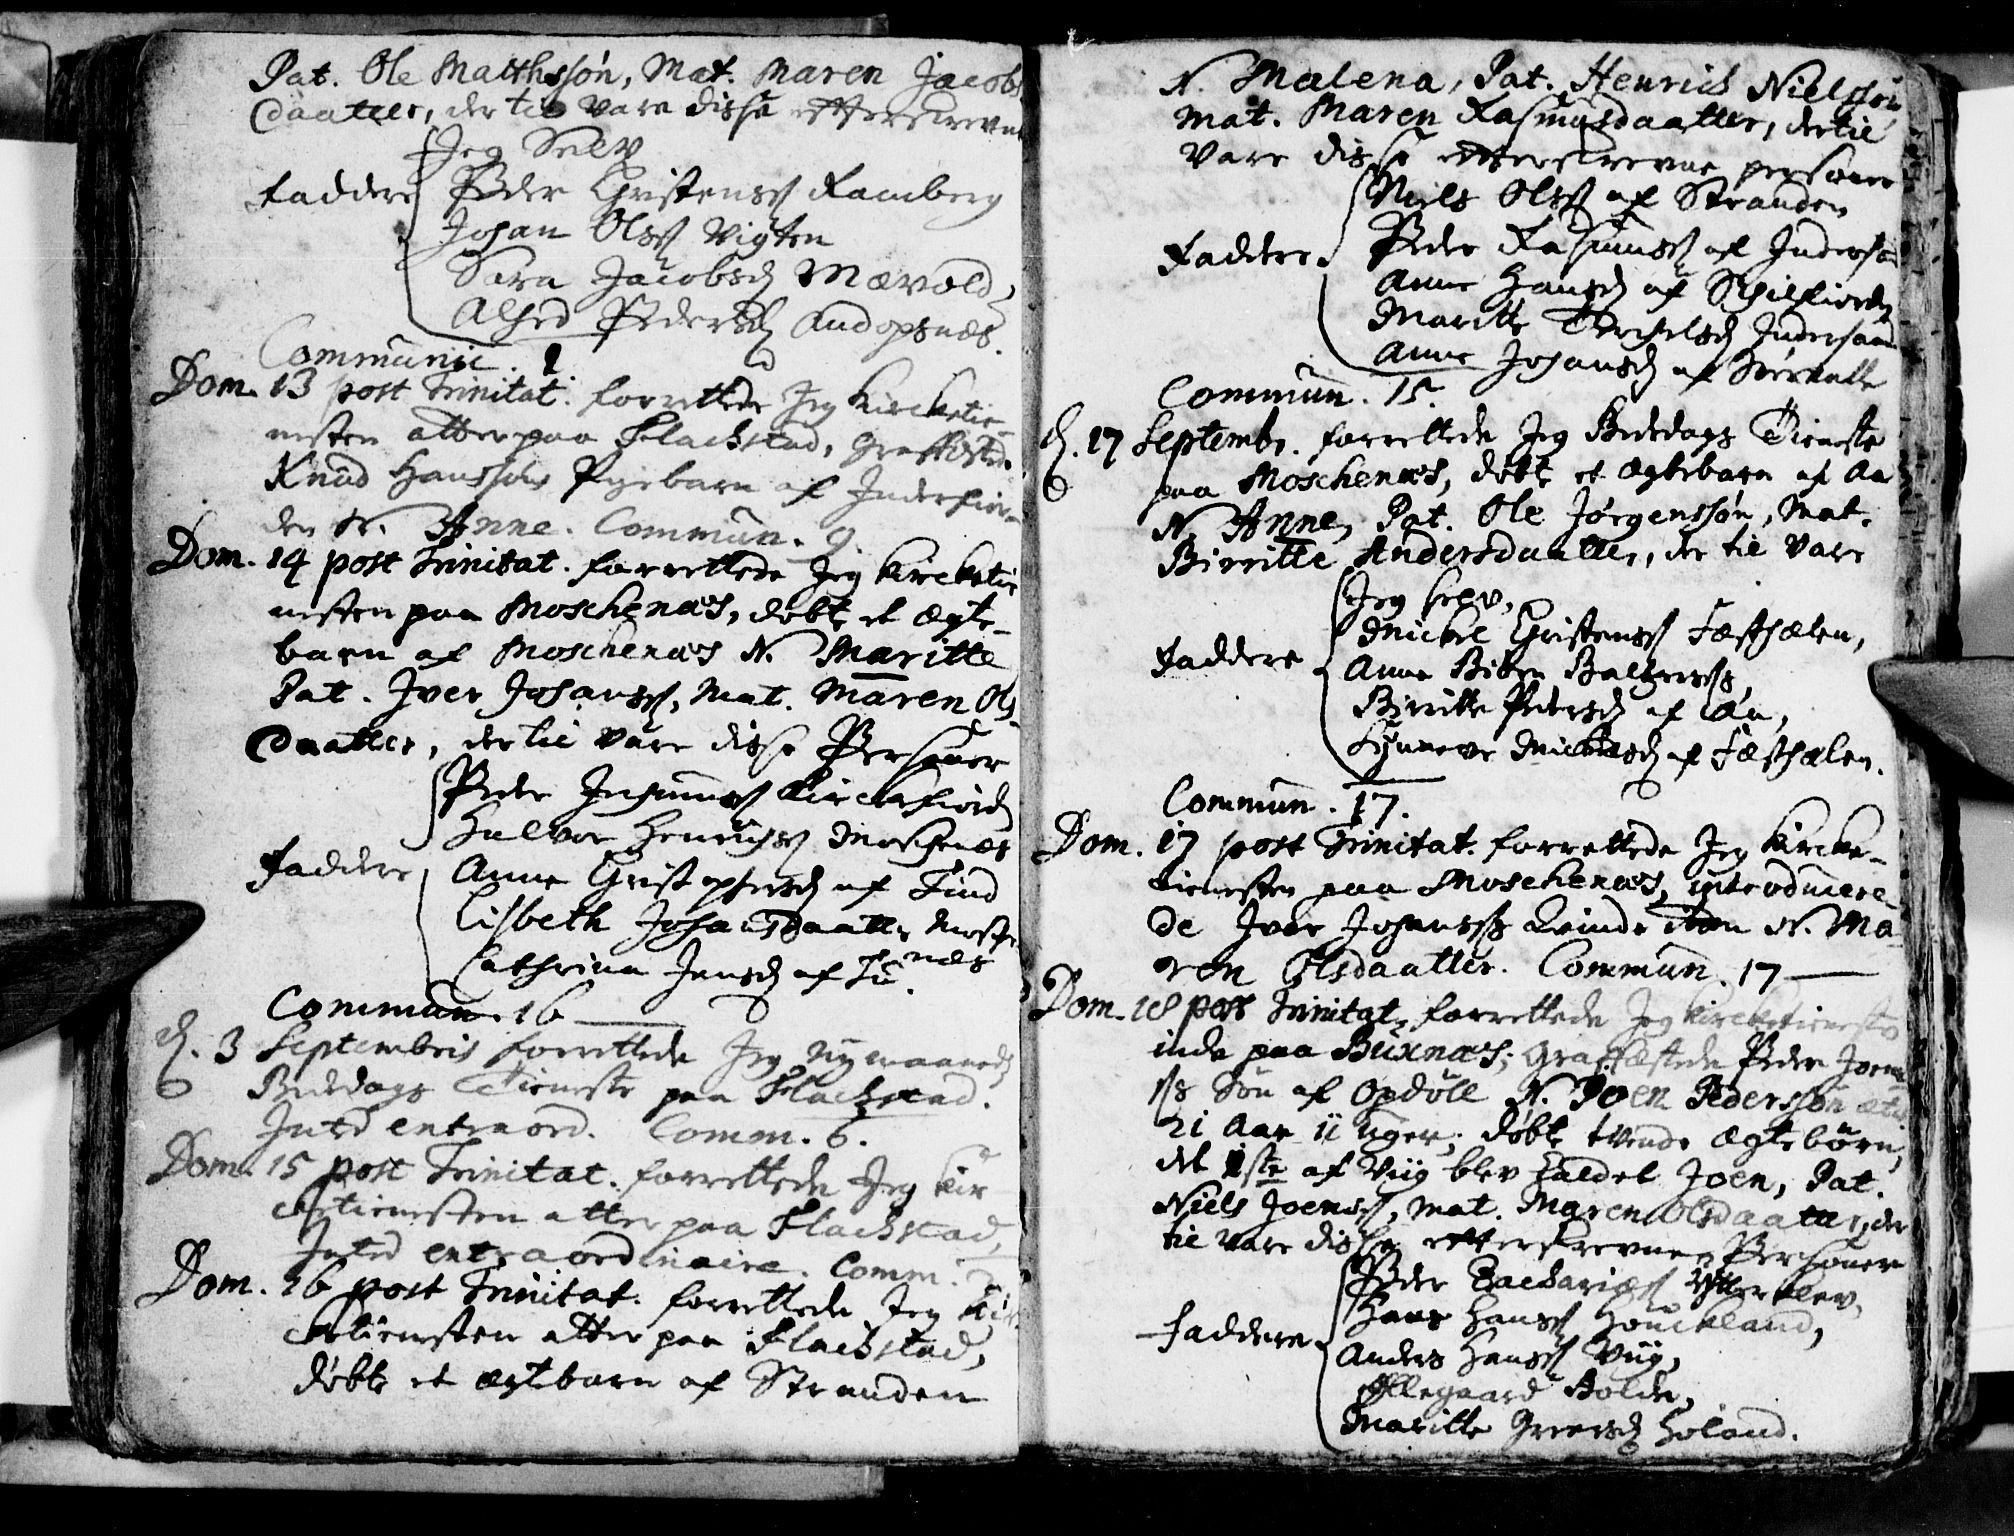 Pat. Ole Matthssøn, Mat. Maren Jacobs
daatter, der til vare disse effterskrevne
Jeg Selv
Faddere Peder Christenss Ramberg
Johan Olss Vigten
Sara Jacobsd Mævold
Alhed Pedersd Andopsnæs.
Communic.
Dom. 13 post Trinitat. forrettede Jeg Kircketie-
nesten atter paa Flachstad, graffæstede
Knud Hanssøns Pigebarn af Inderfior-
den N. Anne. Commun. 9.
Dom. 14 post Trinitat. forrettede Jeg Kircketie
nesten paa Moschenæs, døbte et Ægte-
barn af Moschenæs N. Maritte
Pat. Iver Johanss, Mat. Maren Ols
daatter, der til vare disse Personer
Peder Rasmuss Kirckefiord
Halvor Henrichss Moschenæs
Faddere Anne Christophersd af Tind
Lisbeth Johansdaatter Mosche
næs
Cathrina Jensd af
Commun. 16
d. 3 Septembris forrettede Jeg Nymaaneds
Bededags Tieneste paa Flachstad.
Intet entraord. Comm. 6.
Dom. 15 post Trinitat. forrettede Jeg Kir
cketienesten atter paa Flachstad,
Intet entraordinaire. Comm.
Dom. 16 post Trinitat. forrettede Jeg Kir
cketienesten atter paa Flachstad,
døbte et ægtebarn af Stranden
N. Malena, Pat. Henrich Nielssøn
Mat. Maren Rasmusdaatter, der til
vare disse effterskrevne personer
Niels Olss af Stranden
Faddere Peder Rasmuss af Indersand
Anne Hansd af Schilfiorden
Maritte Indersand
Anne Johansd af
Commun. 15.
d. 17 Septembr. forrettede Jeg Bededags Tieneste
paa Moschenæs, døbte et Ægtebarn af Aa
N. Anne, Pat. Ole Jørgenssøn, Mat.
Birritte Andersdaatter, der til vare
Jeg selv,
Michel Christenss Fæsthælen,
Faddere Anne Balzerss,
Birritte Pedersd af Aa,
Synneve Michelsd af Fæsthælen.
Commun. 17.
Dom. 17 post Trinitat. forrettede Jeg Kircke-
tienesten paa Moschenæs, introducere-
de Iver Johanss Qvinde N. Ma-
ren Olsdaatter. Commun. 17
Dom. 18 post Trinitat, forrettede Jeg Kircketieneste
inde paa Buxnæs, graffæstede Peder Joens
ss Søn af Opdøll N. Joen Pederssøn æt.
21 Aar 11 Uger, døbte tvende Ægtebørn,
det 1ste af Viig blev kaldet Joen, Pat.
Niels Joenss, Mat. Maren Olsdaatter, der
til vare disse effterskrevne Personer
Peder Zachariæss
Hans Hanss Houchland,
Faddere Anders Hanss Viig,
Ellegaard Holde,
Maritte Holand.